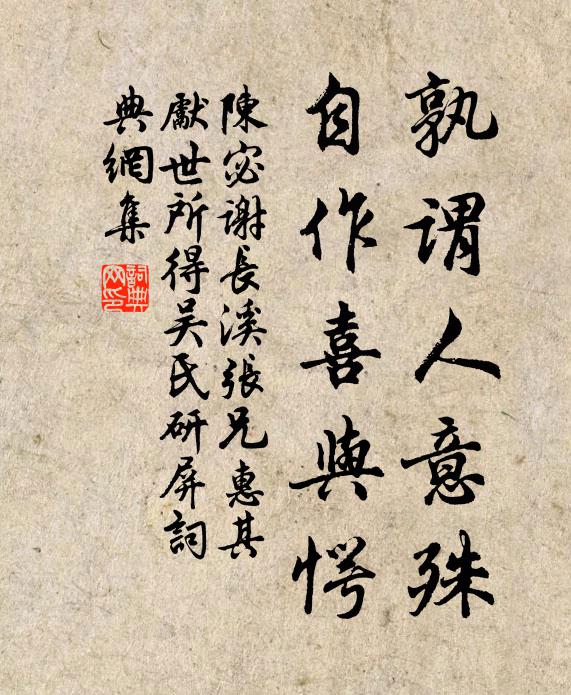 孰謂人意殊
自作喜與愕
陳宓謝長溪張兄惠其
獻世所得吳氏研屏詞
典網集
詞典網印